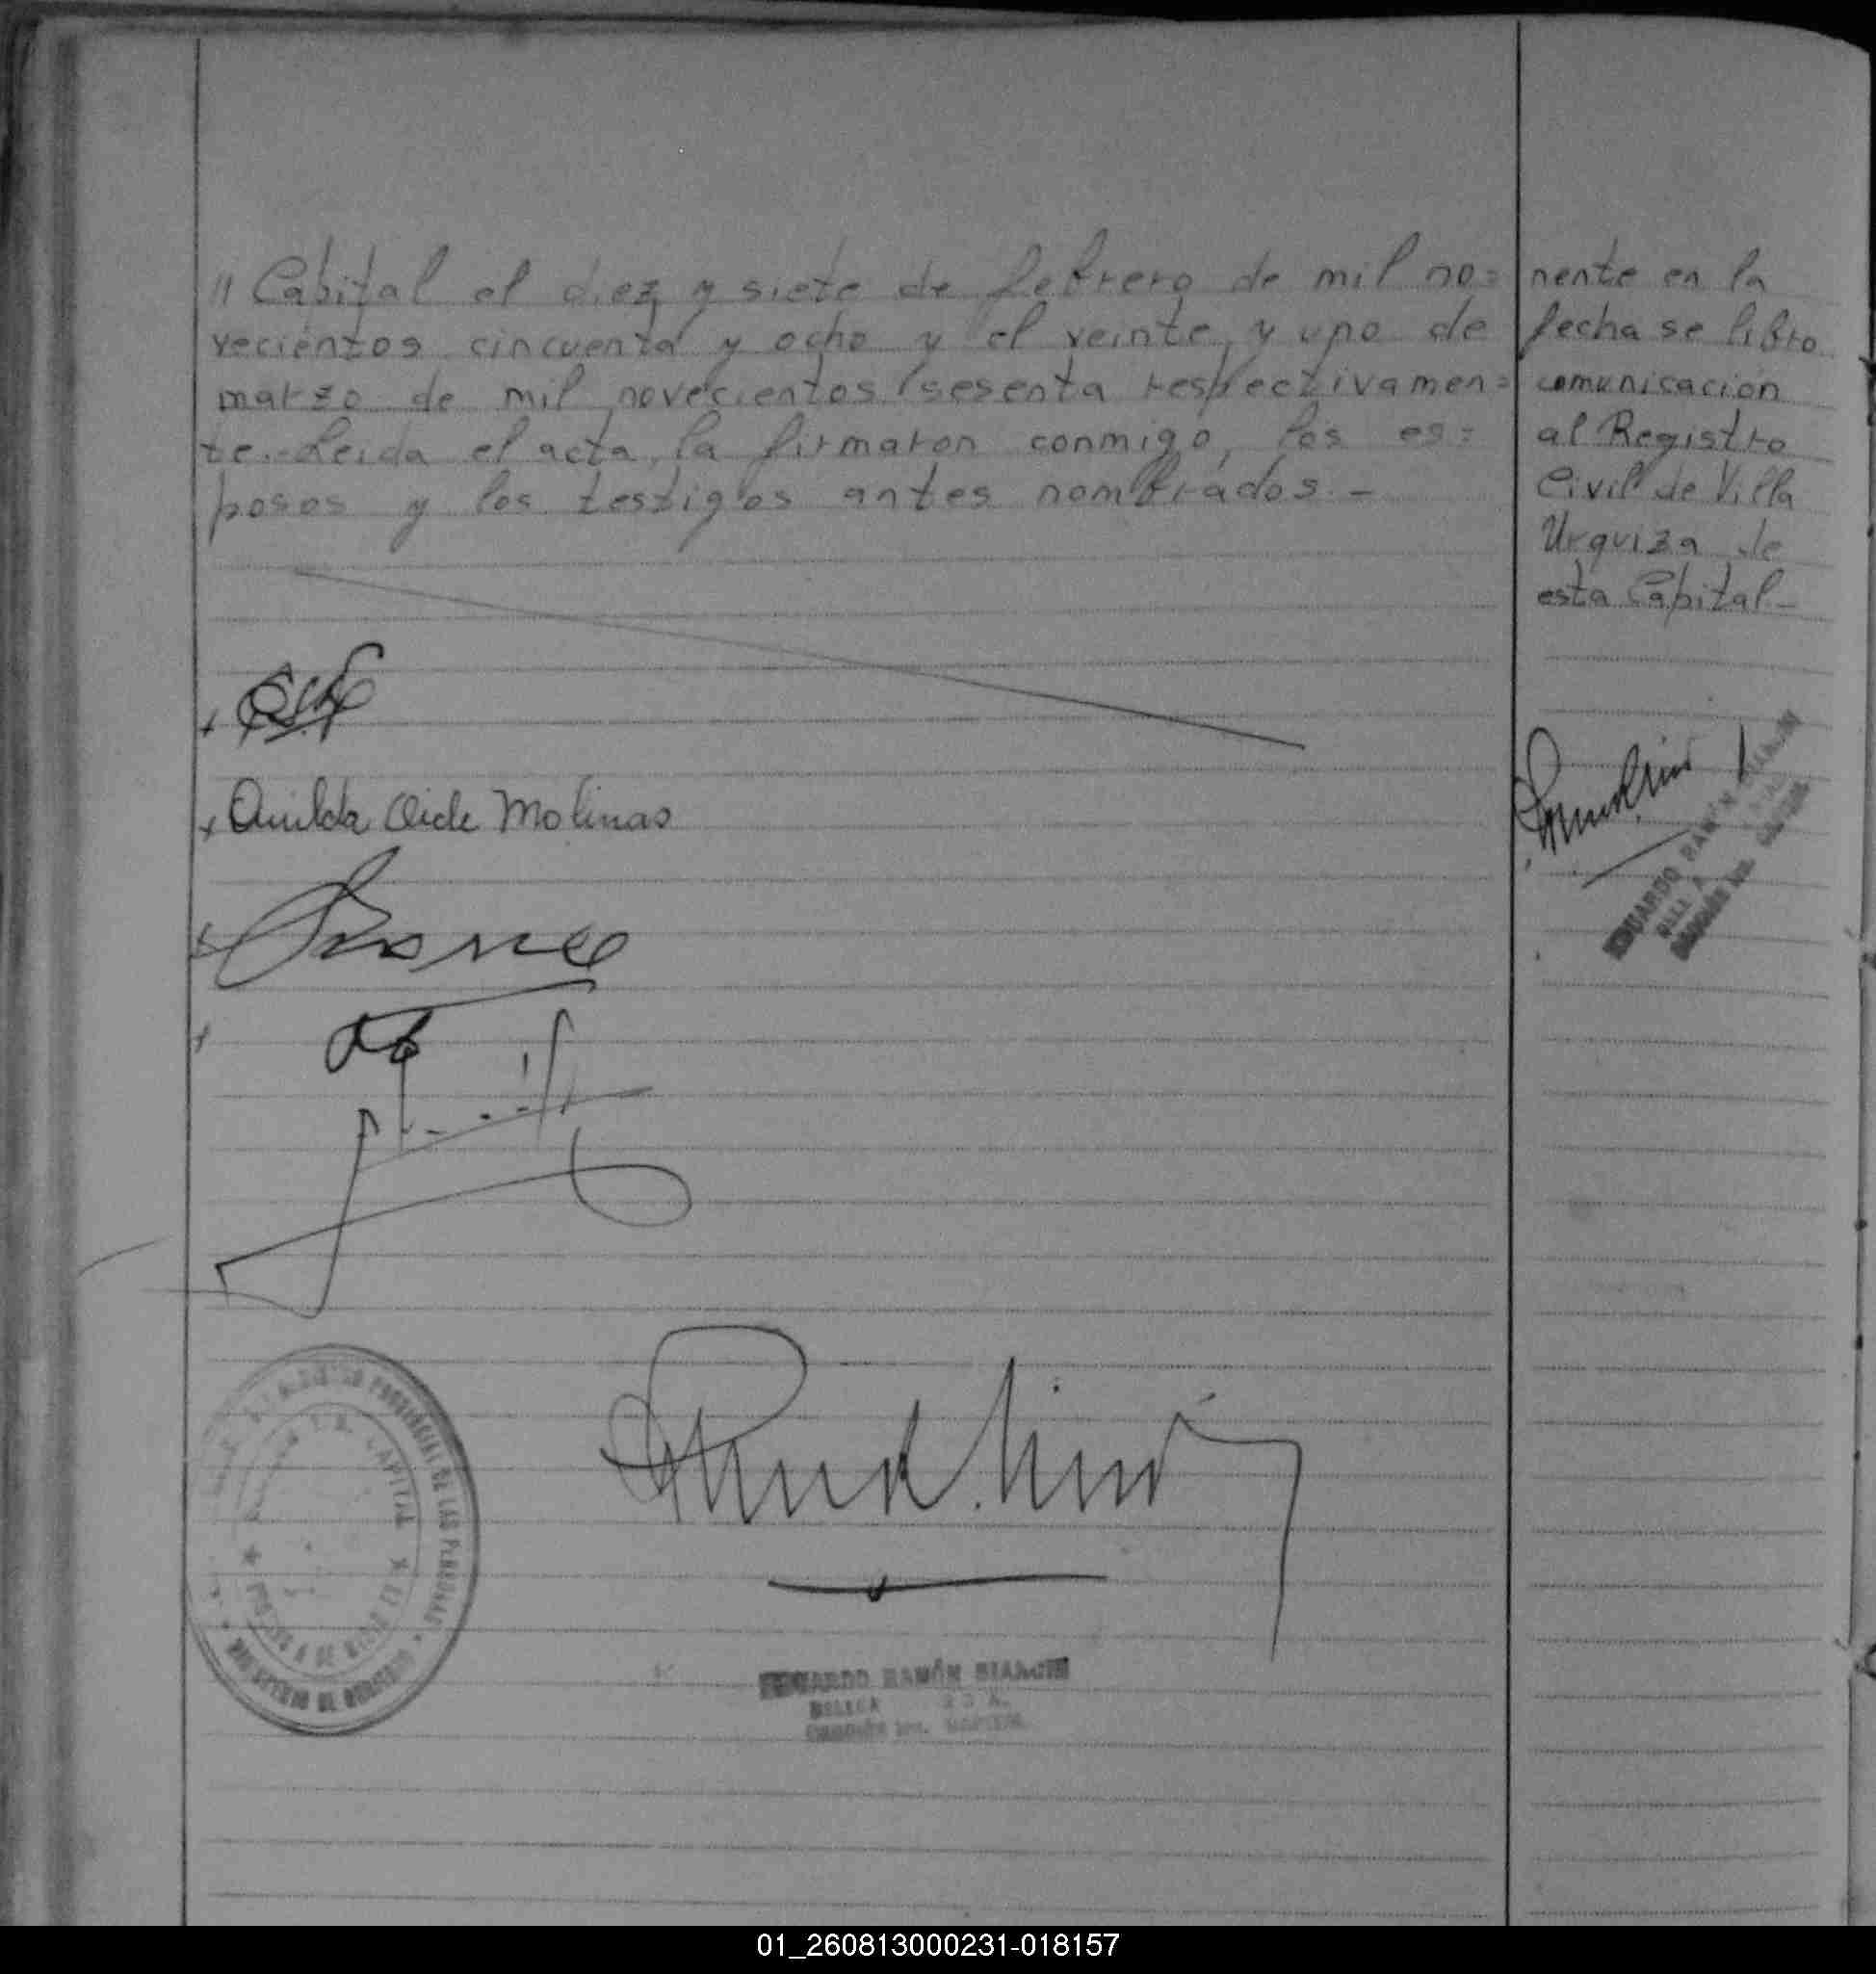 // Capital el diez y siete de febrero de mil no=
vecientos cincuenta y ocho y el veinte y uno de
marzo de mil novecientos sesenta respectivamen=
te.- Leida el acta, la firmaron conmigo, los es=
posos y los testigos antes nombrados.-
nente en la
fecha se libro
comunicación
al Registro
Civil de Villa
Urquiza de
esta Capital-
Molinas
EDUARDO RAMÓN
CAPITAL
PROVINCIAL DE LAS PERSONAS
MINISTERIO DE GOBIERNO
EDUARDO RAMÓN
01_260813000231-018157